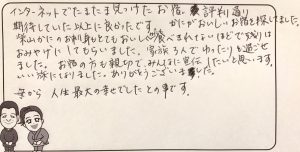 インターネットでたまたま見つけたお宿。評判通り
期待していた以上に良かったです。かにがおいしいお宿を探してました。
柴山がにのお刺身もとてもおいしく食べきれないほどで残りは
おみやげにしてもらいました。家族3人でゆったりと過ごせ
ました。お宿の方も親切で、みんなに宣伝したいと思います。
いい旅になりました。ありがとうございました。
母から 人生最大の幸せでしたとの事です。